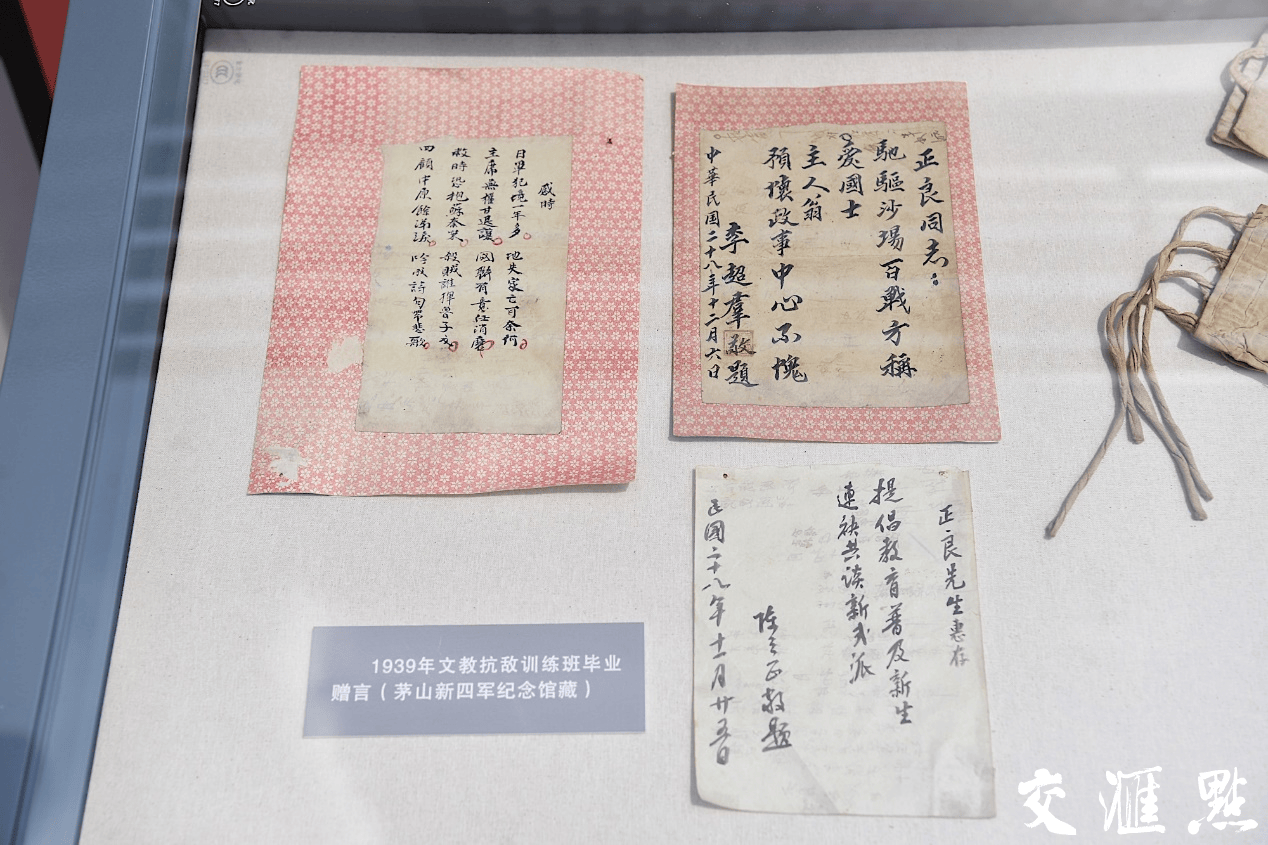 感時
日軍犯境一年多 地失家亡可奈何
主席無權甘退讓 國聯有意任消磨
救時恐抱蘇秦策 殺賊誰揮魯子戈
回顧中原餘滿淚 吟成詩句當悲歌
正良同志:
馳驅沙場百戰方稱
愛國士
主人翁
預壞政事中心不愧
李超羣敬題
中華民国二十八年十二月六日
正良先生惠存
提倡教育普及新生
連袂共談新
陳立正敬題
民國二十八年十一月廿五日
1939年文教抗敌训练班毕业
赠言（茅山新四军纪念馆藏）
交滙點